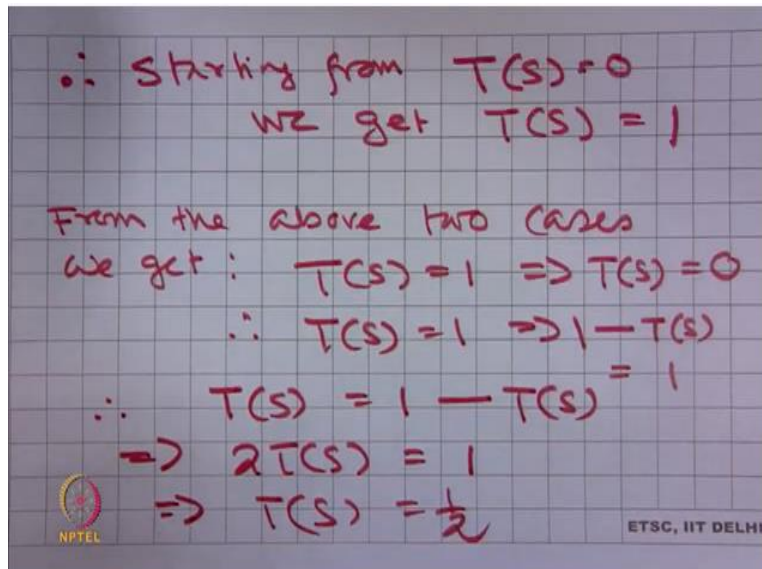 ∴ Starting from T(S)=0
we get T(S) = 1
From the above two cases
we get: T(S) = 1 => T(S) = 0
∴ T(S) = 1 => 1 — T(S)
= 1
∴ T(S) = 1 — T(S)
=> 2T(S) = 1
=> T(S) = 1/2
NPTEL
ETSC, IIT DELHI